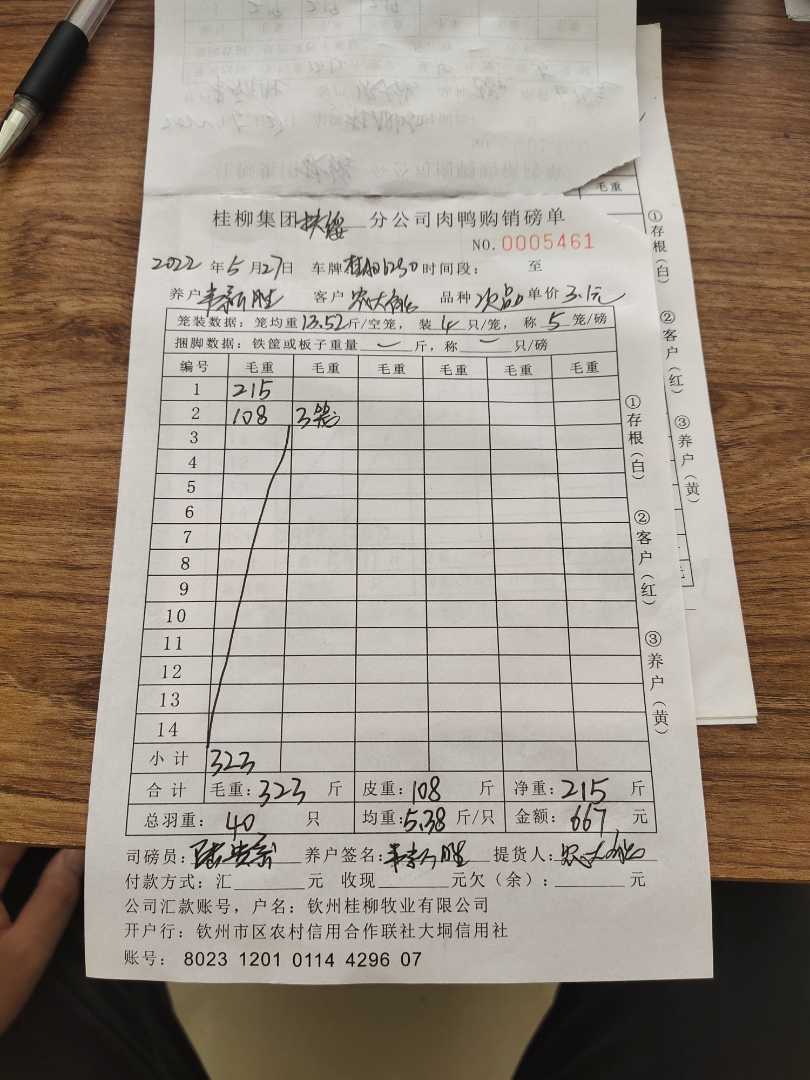 毛重
桂柳集团扶绥分公司肉鸭购销磅单
NO.0005461
2022年5月27日 车牌 时间段: 至
养户 客户农大 品种次品单价3.1元
笼装数据: 笼均重13.52斤/空笼, 装4只/笼, 称5笼/磅
捆脚数据: 铁筐或板子重量—斤, 称—只/磅
编号 毛重 毛重 毛重 毛重 毛重 毛重
1 215
2 108 3笼
3
4
5
6
7
8
9
10
11
12
13
14
小计 323
合计 毛重: 323 斤 皮重: 108 斤 净重: 215 斤
总羽重: 40 只 均重: 5.38 斤/只 金额: 667 元
司磅员: 养户签名: 提货人: 农大
付款方式: 汇 元 收现 元欠(余): 元
公司汇款账号, 户名: 钦州桂柳牧业有限公司
开户行: 钦州市区农村信用合作联社大垌信用社
账号: 8023 1201 0114 4296 07
①存根(白) ②客户(红) ③养户(黄)
①存根(白) ②客户(红) ③养户(黄)